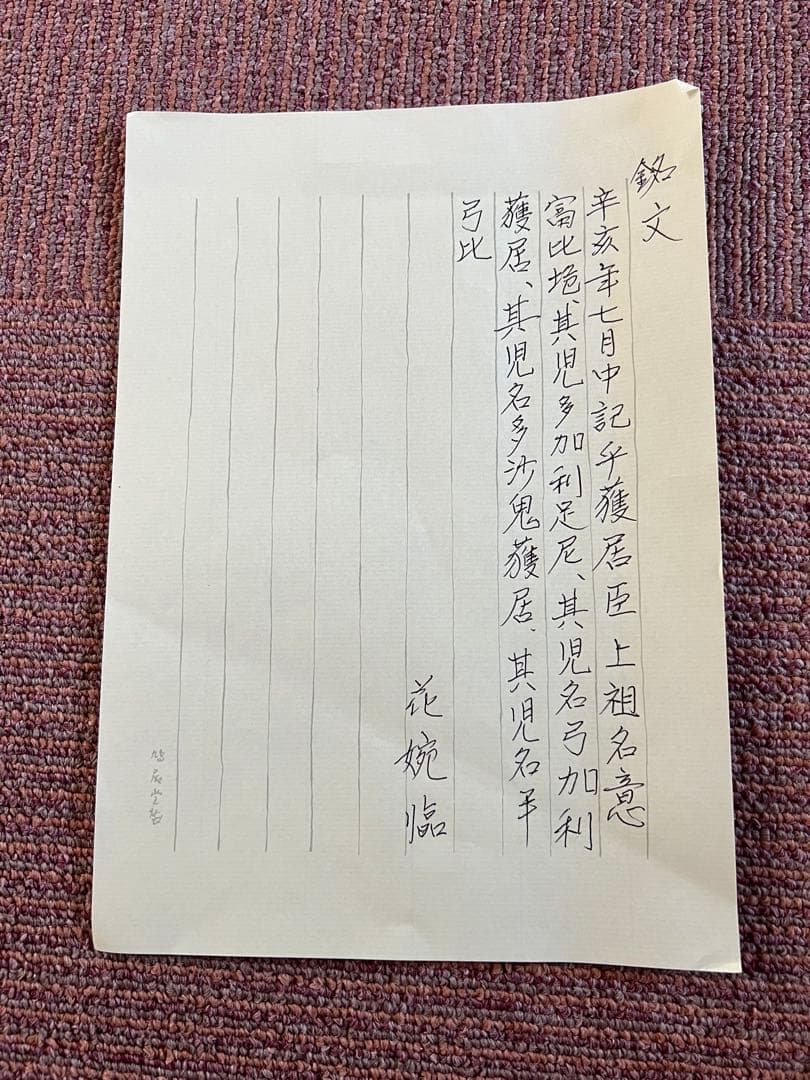 銘文
辛亥年七月中記乎獲居臣上祖名意
富比垝、其児多加利足尼、其児名弖加利
獲居、其児名多沙鬼獲居、其児名半
弖比
花婉臨
鳩居堂製